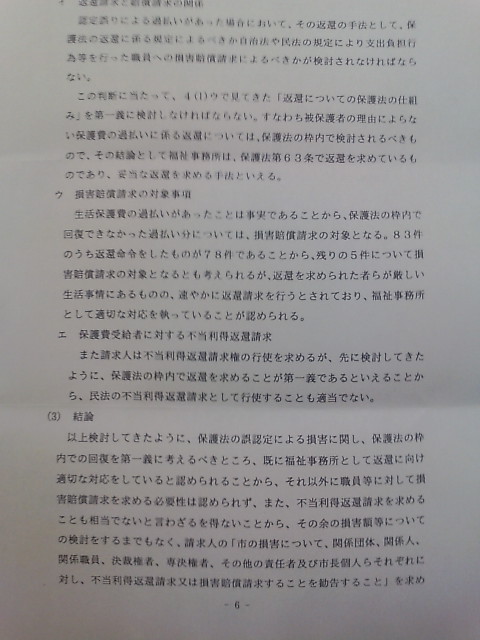 イ 返還請求と賠償請求の関係
認定誤りによる過払いがあった場合において、その返還の手法として、保
護法の返還に係る規定によるべきか自治法や民法の規定により支出負担行
為等を行った職員への損害賠償請求によるべきかが検討されなければなら
ない。
この判断に当たって、4(1)ウで見てきた「返還についての保護法の仕組
み」を第一義に検討しなければならない。すなわち被保護者の理由によらな
い保護費の過払いに係る返還については、保護法の枠内で検討されるべきも
ので、その結論として福祉事務所は、保護法第63条で返還を求めているも
のであり、妥当な返還を求める手法といえる。
ウ 損害賠償請求の対象事項
生活保護費の過払いがあったことは事実であることから、保護法の枠内で
回復できなかった過払い分については、損害賠償請求の対象となる。83件
のうち返還命令をしたものが78件であることから、残りの5件について損
害賠償請求の対象となるとも考えられるが、返還を求められた者らが厳しい
生活事情にあるものの、速やかに返還請求を行うとされており、福祉事務所
として適切な対応を執っていることが認められる。
エ 保護費受給者に対する不当利得返還請求
また請求人は不当利得返還請求権の行使を求めるが、先に検討してきた
ように、保護法の枠内で返還を求めることが第一義であるといえることか
ら、民法の不当利得返還請求として行使することも適当でない。
(3) 結論
以上検討してきたように、保護法の誤認定による損害に関し、保護法の枠
内での回復を第一義に考えるべきところ、既に福祉事務所として返還に向け
適切な対応をしていると認められることから、それ以外に職員等に対して損
害賠償請求を求める必要性は認められず、また、不当利得返還請求を求める
ことも相当でないと言わざるを得ないことから、その余の損害額等について
の検討をするまでもなく、請求人の「市の損害について、関係団体、関係人、
関係職員、決裁権者、専決権者、その他の責任者及び市長個人らそれぞれに
対し、不当利得返還請求又は損害賠償請求することを勧告すること」を求め
- 6 -